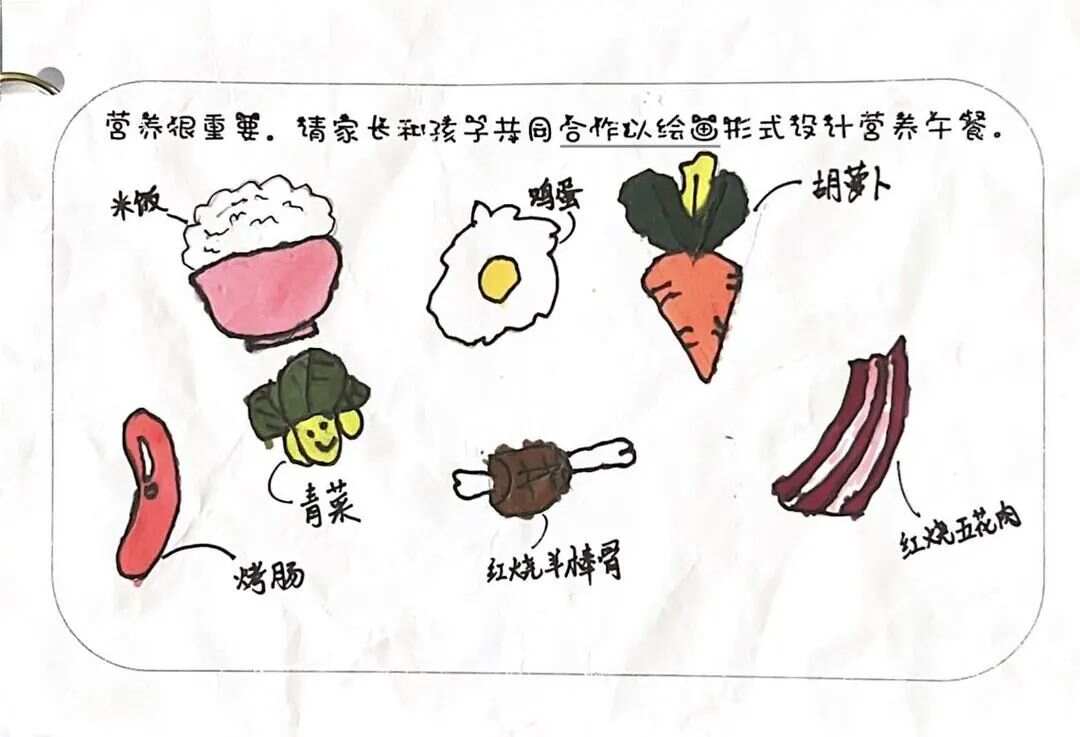 营养很重要。请家长和孩子共同合作以绘画形式设计营养午餐。
米饭
鸡蛋
胡萝卜
青菜
烤肠
红烧羊棒骨
红烧五花肉